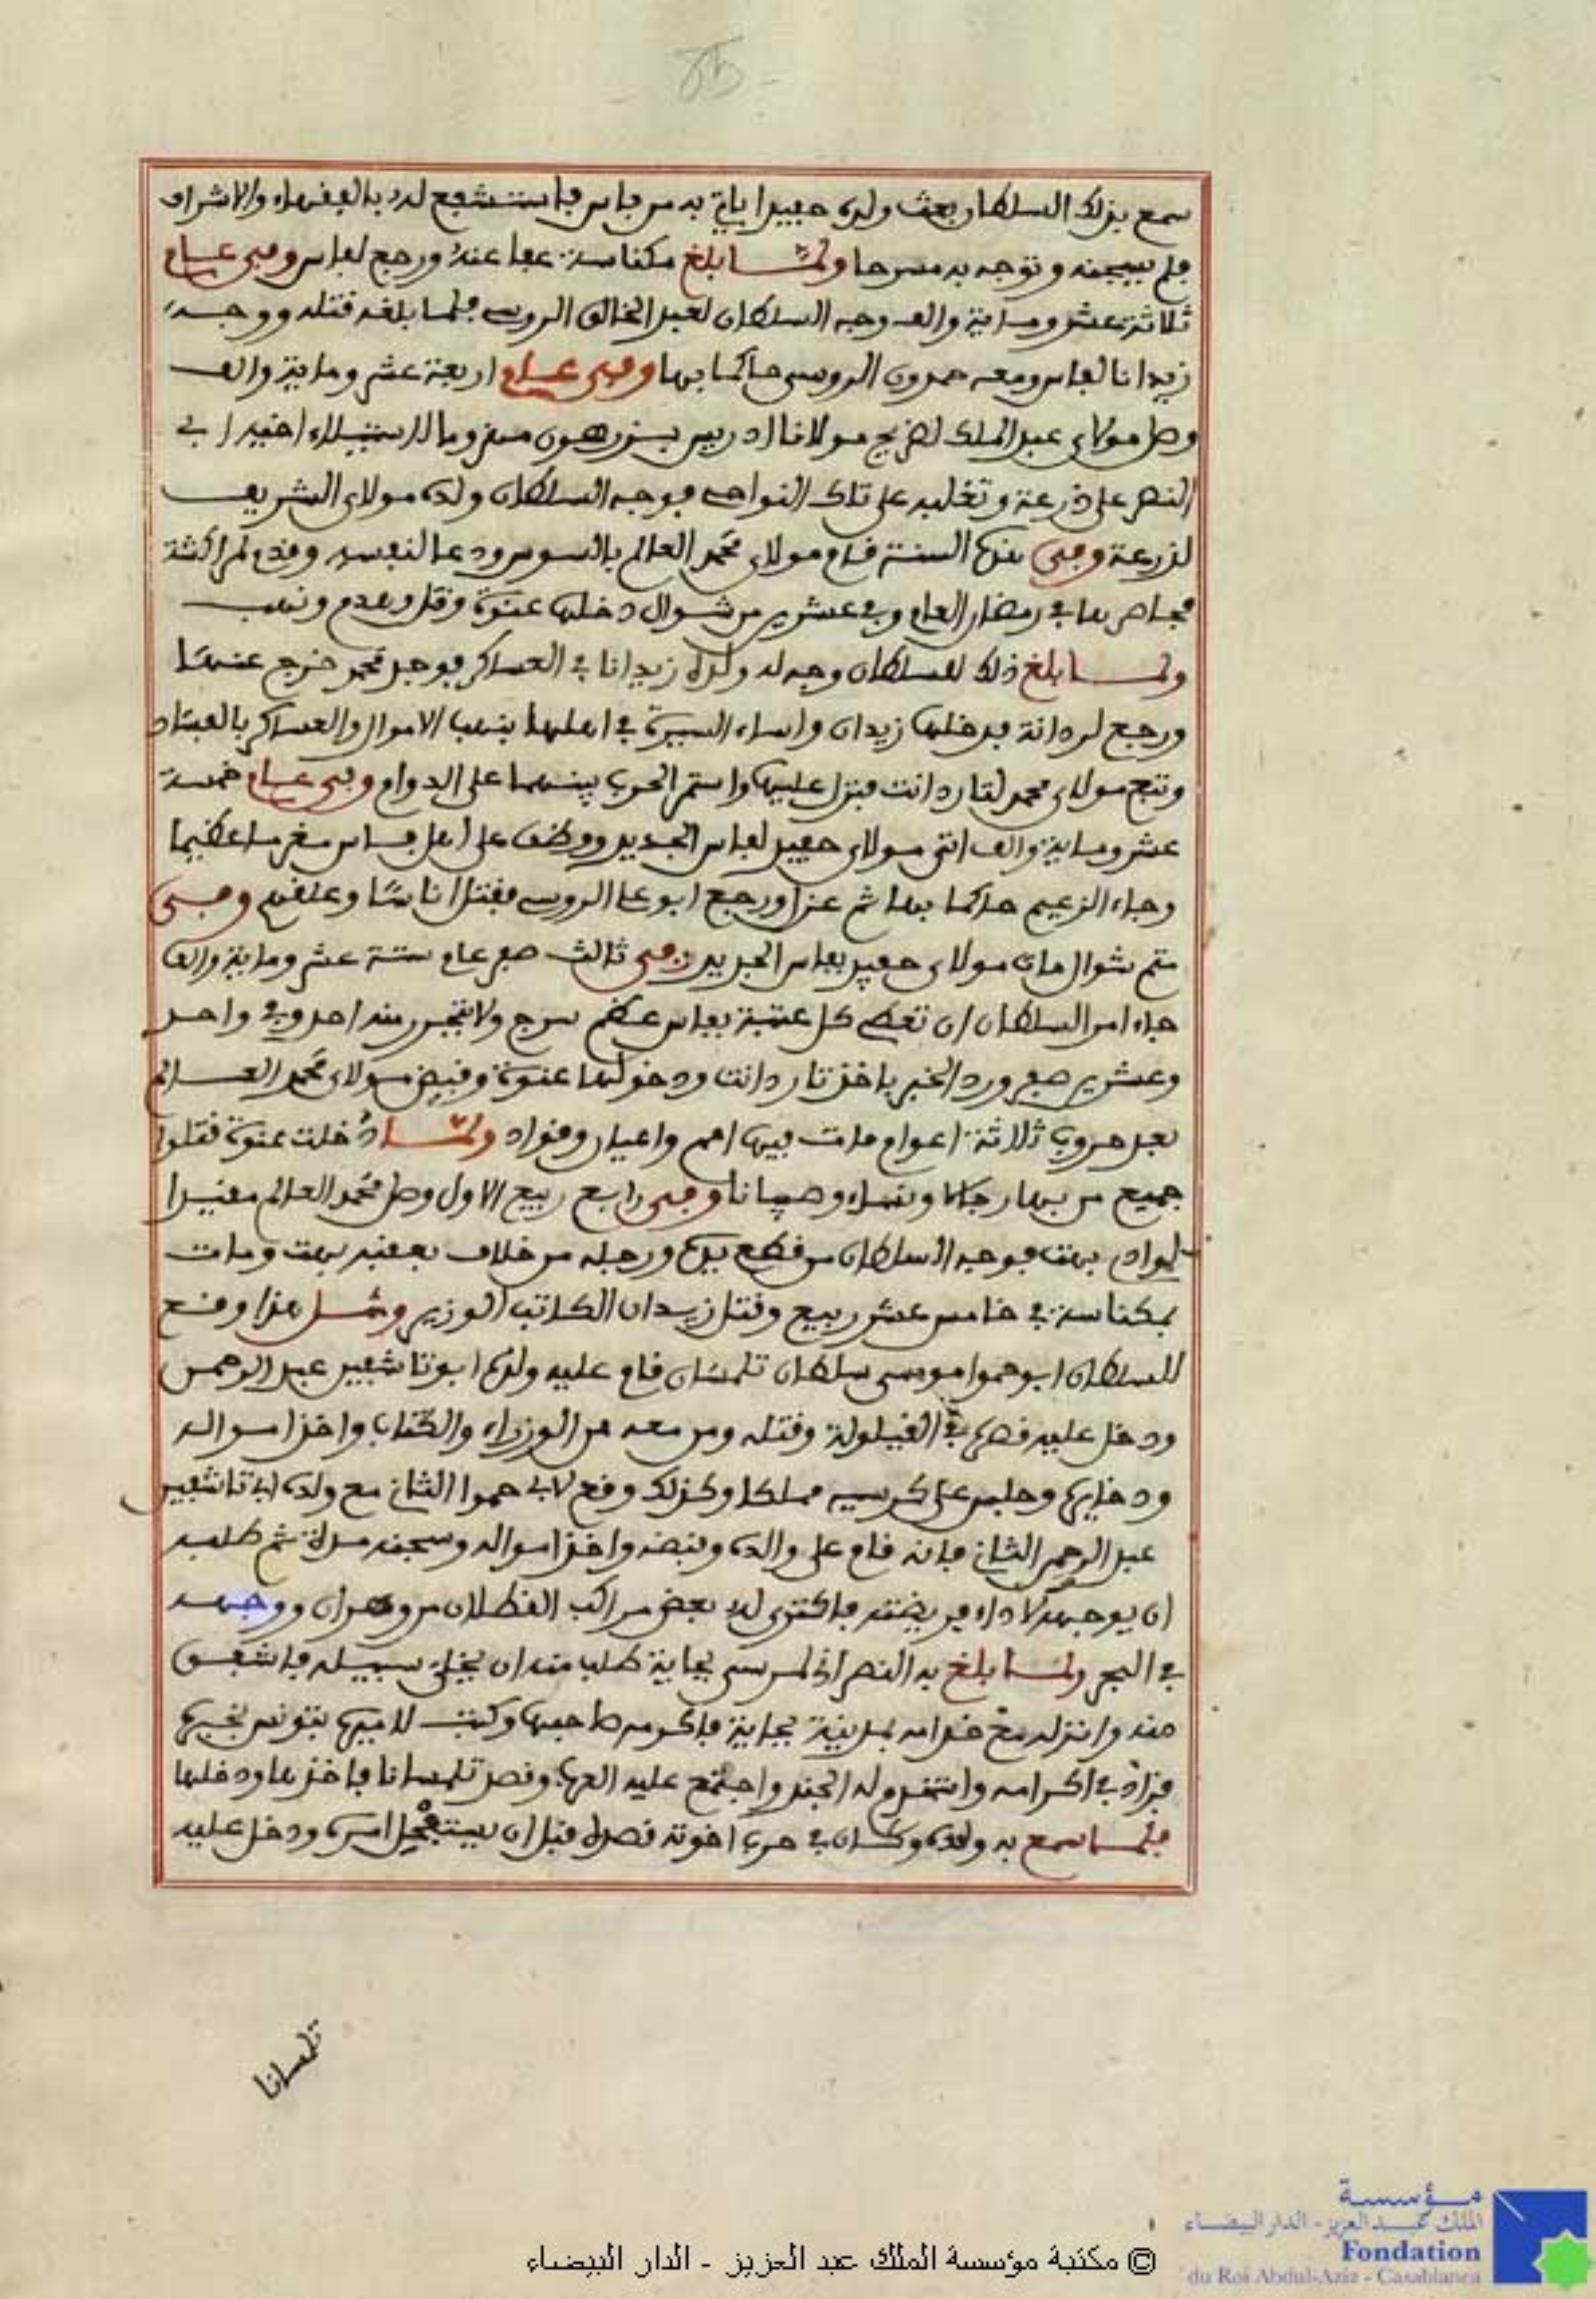 سمع بذلك السلطان بعث ولده حفيدا ياتي به من فاس فاستشفع له بالفقهاء والاشراف
فلم يسجنه وتوجه به مسرحا ولما بلغ مكناسة عفا عنه ورجع لفاس وفي عام
ثلاثة عشر وماية والف وجه السلطان لعبد الخالق الروسي فلما بلغه قتله ووجه
زيدانا لفاس ومعه حمدون الروسي حاكما بها وفي عام اربعة عشر وماية والف
وصل مولاي عبد الملك لضريح مولانا ادريس بزرهون مهزوما لاستيلاء اخيه ابي
النصر على ذرعة وتغلبه على تلك النواحي فوجه السلطان ولده مولاي الشريف
لذرعة وفي هذه السنة قام مولاي محمد العالم بالسوس ودعا لنفسه وقدم لمراكشة
فحاصرها في رمضان العام وفي عشرين من شوال دخلها عنوة وقتل وهدم ونهب
ولما بلغ ذلك للسلطان وجه له ولده زيدانا في العساكر فوجد محمد خرج عنها
ورجع لردانة فدخلها زيدان واساء السيرة في اهلها بنهب الاموال والعساكر بالفساد
وتبع مولاي محمد لتاردانت فنزل عليها واستمر الحرب بينهما على الدوام وفي عام خمسة
عشر وماية والف اتى مولاي حفيد لفاس الجديد ووظف على اهل فاس مغرما عظيما
وجاء الزعيم حاكما بها ثم عزل ورجع ابو علي الروسي فقتل اناسا وعلقهم وفي
متم شوال مات مولاي حفيد بفاس الجديد وفي ثالث صفر عام ستة عشر وماية والف
جاء امر السلطان ان تعطي كل عتبة بفاس عظم سرج ولا يتحرر منه احد وفي واحد
وعشرين صفر ورد الخبر باخذ تاردانت ودخولها عنوة وقبض مولاي محمد العالم
بعد حروب ثلاثة اعوام مات فيها امم واعيان وقواد ولما دخلت عنوة قتلوا
جميع من بها رجالا ونساء وصبيانا وفي رابع ربيع الاول وصل محمد العالم مقيدا
لوادي بهت فوجه السلطان من قطع يده ورجله من خلاف بعقبة بهت ومات
بمكناسة في خامس عشر ربيع وقتل زيدان الكاتب الوزير ومثل هذا وقع
للسلطان ابو حموا موسى سلطان تلمسان قام عليه ولده ابو تاشفين عبد الرحمن
ودخل عليه قصره في القيلولة وقتله ومن معه من الوزراء والكتاب واخذ امواله
ودخايره وجلس على كرسيه مملكا وكذلك وقع لابي حموا الثاني مع ولده ابي تاشفين
عبد الرحمن الثاني فانه قام على والده وقبضه واخذ امواله وسجنه مدة ثم طلبه
ان يوجهه لاداء فريضته فاكترى له بعض مراكب القطلان من وهران ووجهه
في البحر ولما بلغ به النصراني لمرسى بجاية طلب منه ان يخلي سبيله فاشفق
منه وانزله مع خدامه بمدينة بجاية فاكرمه صاحبها وكتب لاميره بتونس بخبره
فزاد في اكرامه واستخدم له الجند واجتمع عليه العرب وقصد تلمسانا فاخذها ودخلها
فلما سمع به ولده وكان في حرب اخوته قصده قبل ان يستفحل امره ودخل عليه
تلمسانا
مؤسسة
الملك عبد العزيز - الدار البيضاء
Fondation
du Roi Abdul-Aziz - Casablanca
© مكتبة مؤسسة الملك عبد العزيز - الدار البيضاء